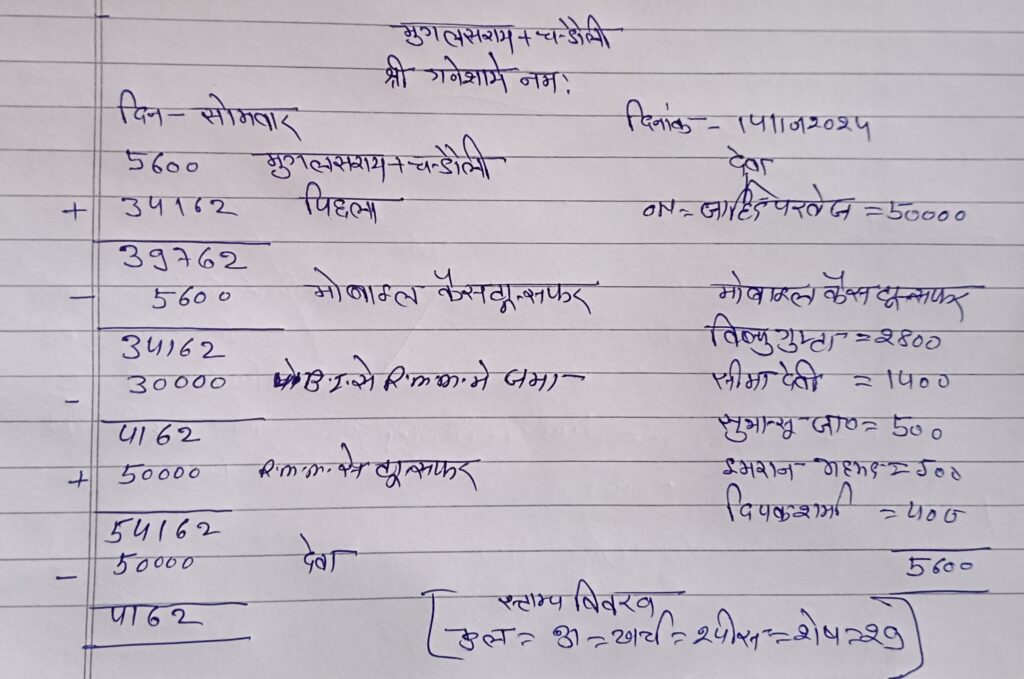 मुगलसराय + चन्डौली
श्री गनेशाये नमः
दिन - सोमवार दिनांक -
5600 मुगलसराय + चन्डौली देवा
+ 34162 पिछला ON = जाहिद परवेज = 50000
39762
- 5600 मोबाइल कैस ट्रान्सफर मोबाइल कैस ट्रान्सफर
34162 विष्णु गुप्ता = 2800
- 30000 B.I. से R.m.m. मे जमा सीमा देवी = 1400
4162 = 500
+ 50000 R.m.m. से ट्रान्सफर इमरान अहमद = 500
54162 दिपक शर्मा = 400
- 50000 देवा 5600
4162 स्टाम्प विवरण
कुल = = खर्च = = शेष = 29